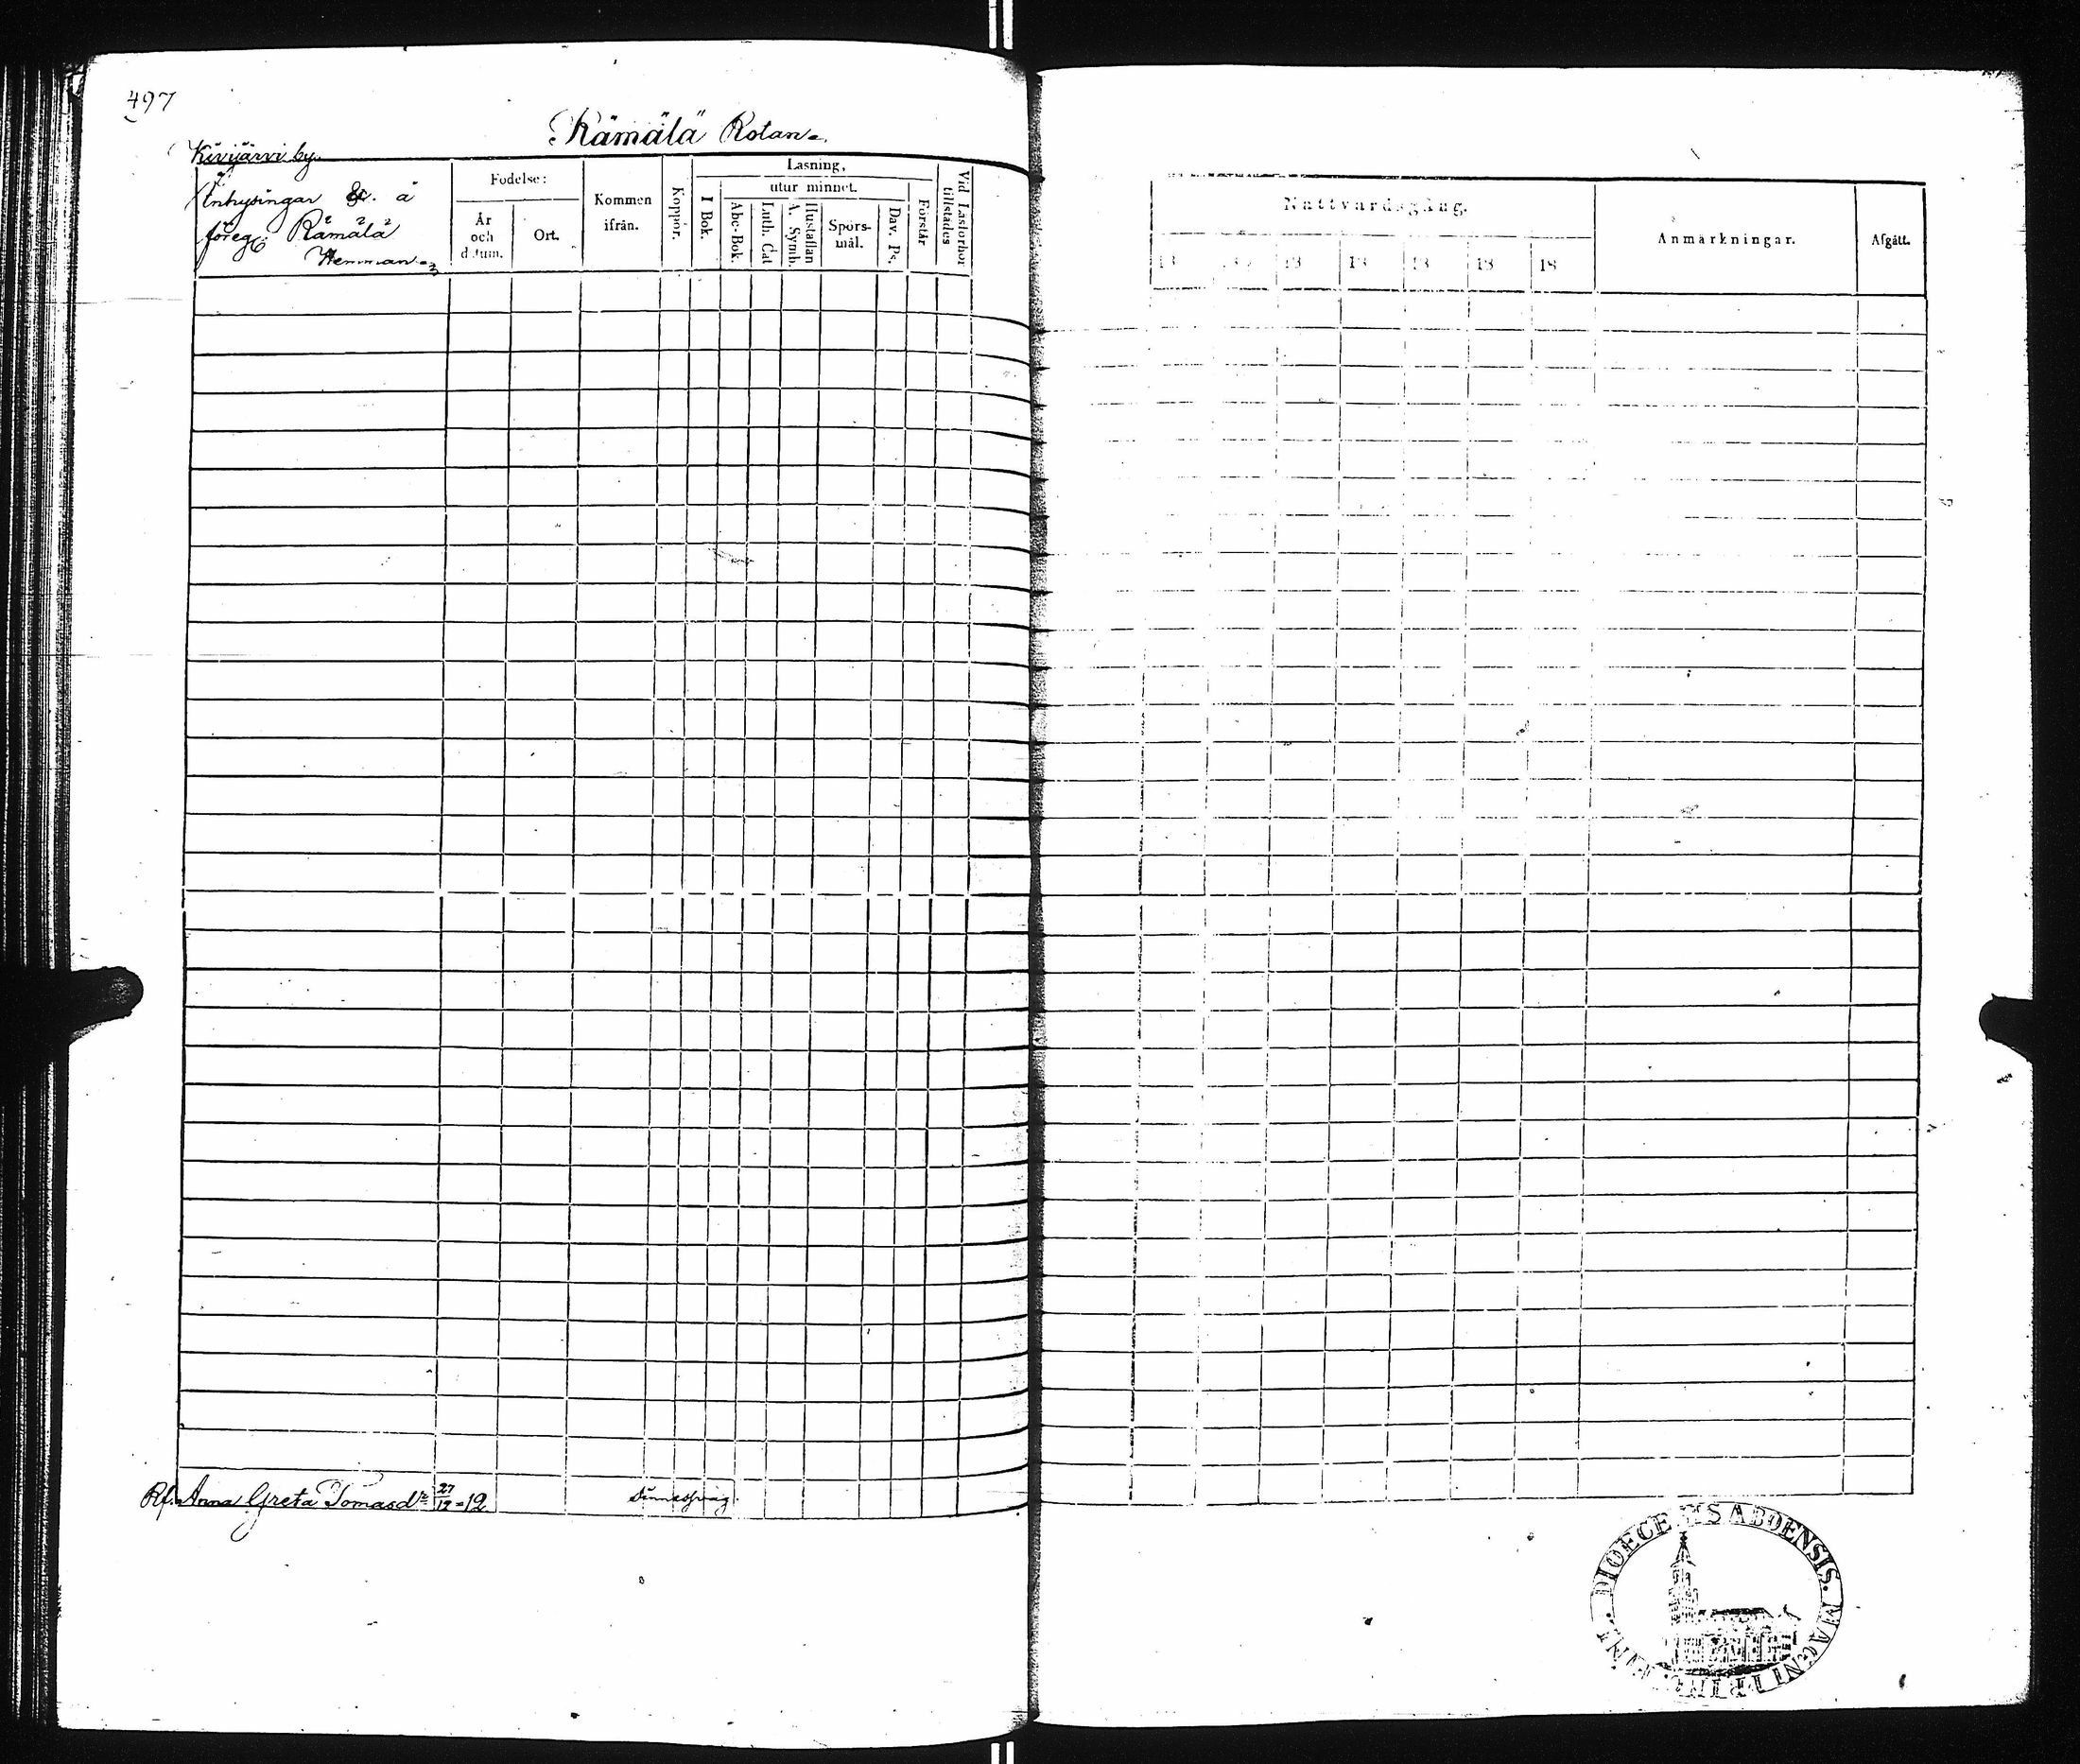 497
Rämälä Rotan.
Kivijärvi by.
Inhysingar &c. å
föreg. Rämälä
Hemman
Födelse:
År
och
datum.
Ort.
Kommen
ifrån.
Koppor.
Läsning,
I Bok.
utur minnet.
Abc-Bok.
Luth. Cat
A. Symb.
Hustaflan
Spörs-
mål.
Dav. Ps.
Förstår
Vid Läsförhör
tillstädes
Rf. Anna Greta Tomasdr 27/12 = 12 sinnessvag.
Nattvardsgång.
18 18 18 18 18 18 18
Anmärkningar.
Afgått.
DIOECESIS ABOENSIS. MAGNI